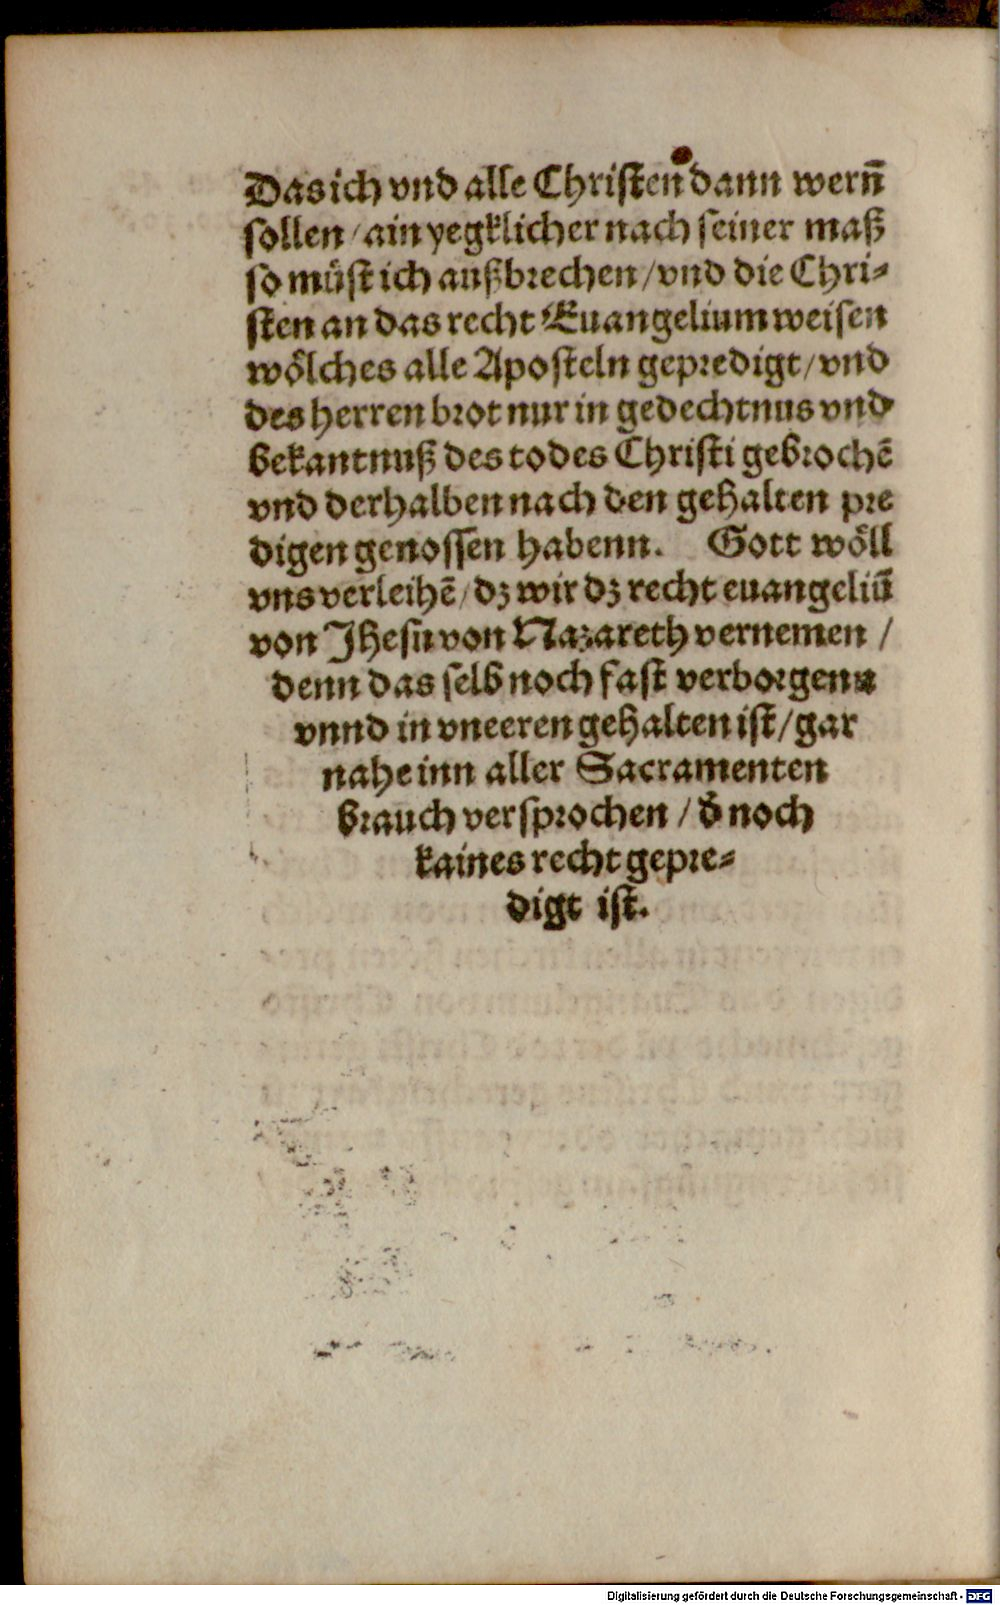 Das ich vnd alle Christen dann wern̄
sollen / ain yegklicher nach seiner maß
so müst ich außbrechen / vnd die Chri⸗
sten an das recht Euangelium weisen
wölches alle Aposteln gepredigt / vnd
des herren brot nur in gedechtnus vnd
bekantnuß des todes Christi gebrochē
vnd derhalben nach den gehalten pre
digen genossen habenn. Gott wöll
vns verleihē / dz wir dz recht euangeliū
von Jhesu von Nazareth vernemen /
denn das selb noch fast verborgenn
vnnd in vneeren gehalten ist / gar
nahe inn aller Sacramenten
brauch versprochen / d̕ noch
kaines recht gepre⸗
digt ist.
Digitalisierung gefördert durch die Deutsche Forschungsgemeinschaft - DFG